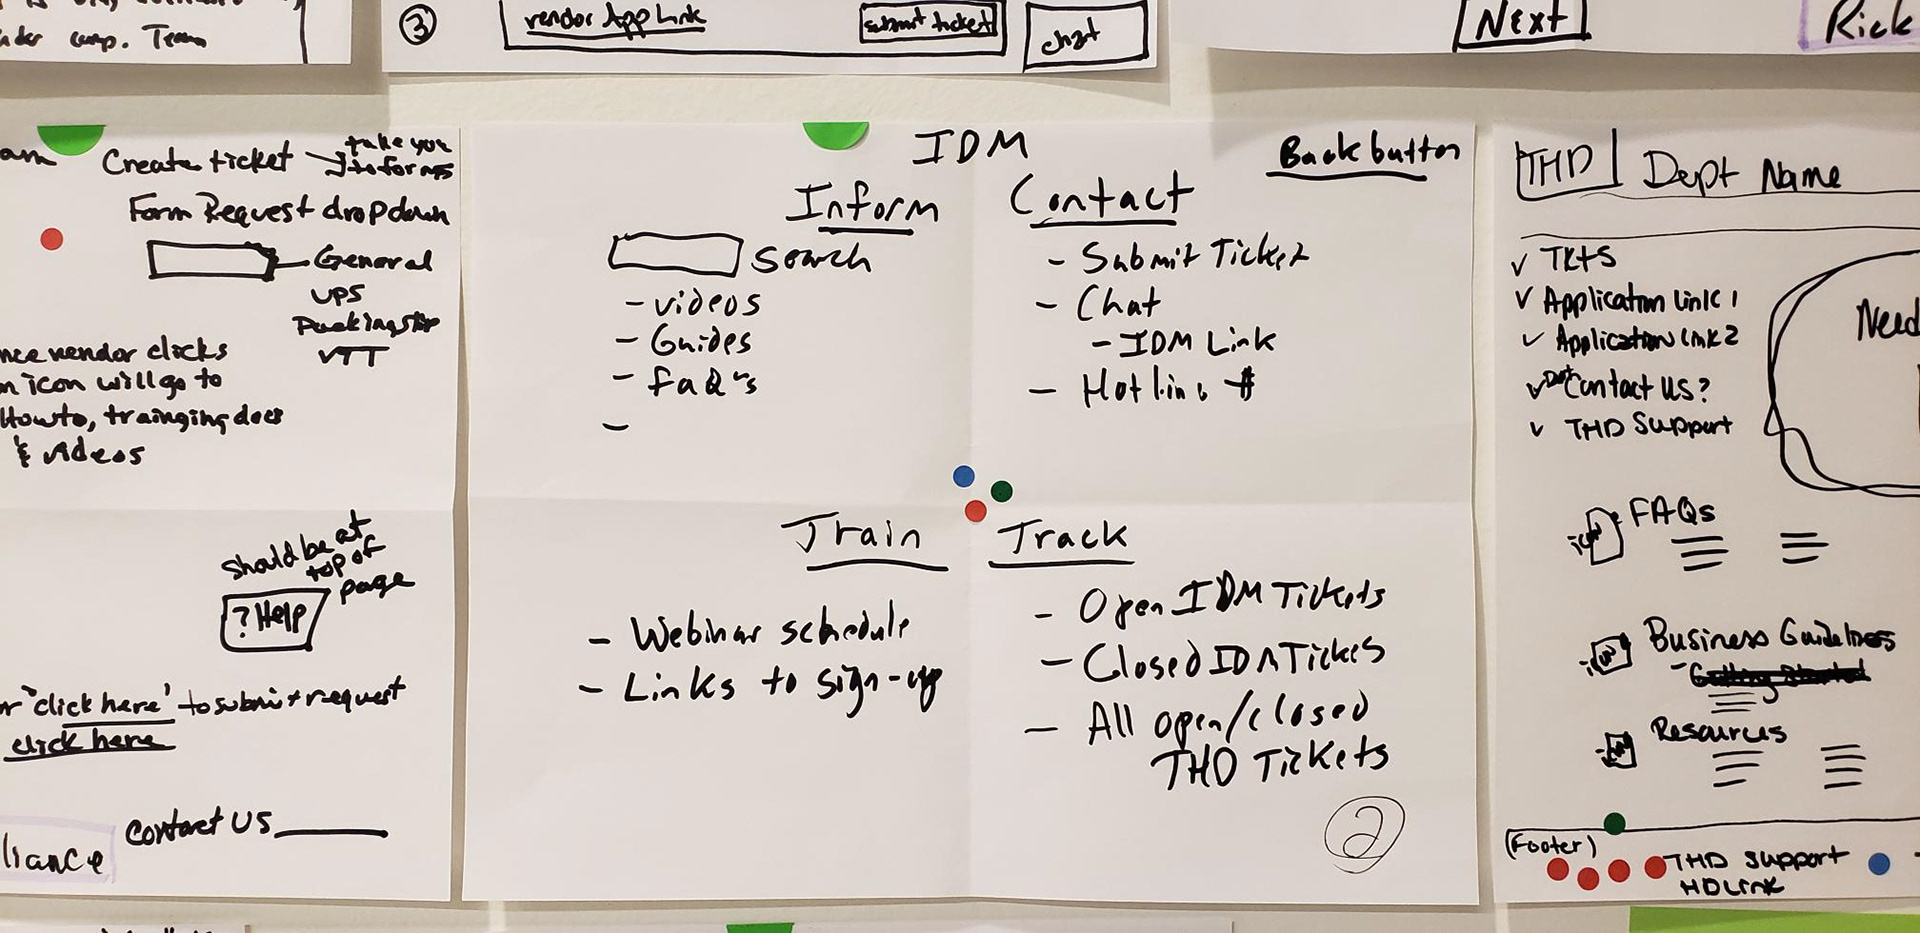 comp. Team
3
vendor App Link
submit ticket
chat
Next
Rick
Create ticket
take you
to forms
Form Request dropdown
General
UPS
Packing slip
VTT
vendor clicks
icon will go to
How to, trainging docs
& videos
should be at
top of
page
? Help
"click here" to submit request
click here
Contact US
liance
IDM
Back button
Inform
search
- videos
- Guides
- faQ's
-
Contact
- Submit Ticket
- Chat
- IDM Link
- Hotline #
Train
- Webinar schedule
- Links to sign-up
Track
- Open IDM Tickets
- Closed IDM Tickets
- All open/closed
THD Tickets
2
THD
Dept Name
✓ TKTS
✓ Application link 1
✓ Application link 2
✓ Dept Contact us?
✓ THD Support
Need
FAQs
Business Guidelines
- Getting Started
Resources
(Footer)
THD Support
HD Link